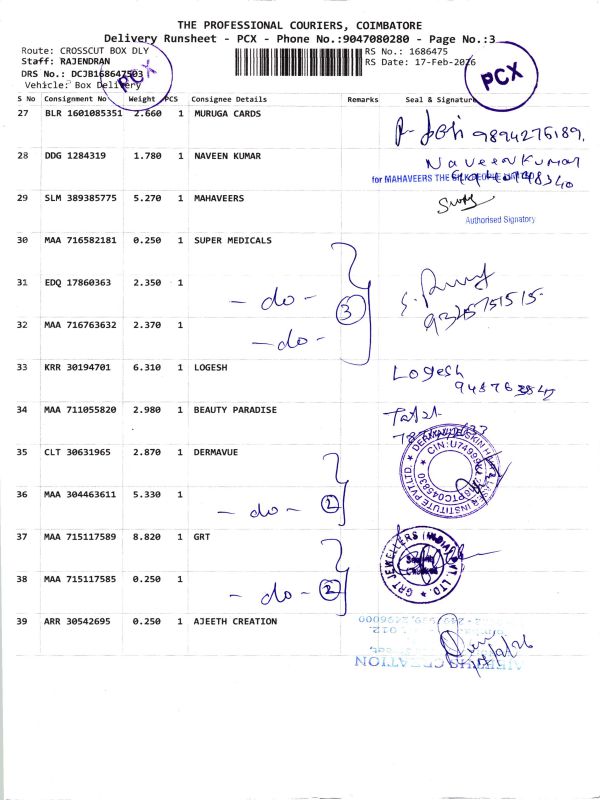 THE PROFESSIONAL COURIERS, COIMBATORE
Delivery Runsheet - PCX - Phone No.:9047080280 - Page No.:3
Route: CROSSCUT BOX DLY
RS No.: 1686475
Staff: RAJENDRAN
RS Date: 17-Feb-2026
DRS No.: DCJB168647503
Vehicle: Box Delivery
PCX
PCX
S No Consignment No Weight PCS Consignee Details Remarks Seal & Signature
27 BLR 1601085351 2.660 1 MURUGA CARDS
9894276189.
28 DDG 1284319 1.780 1 NAVEEN KUMAR Naveen Kumar
for MAHAVEERS THE SILK
29 SLM 389385775 5.270 1 MAHAVEERS
Authorised Signatory
30 MAA 716582181 0.250 1 SUPER MEDICALS
31 EDQ 17860363 2.350 1 - do -
3
32 MAA 716763632 2.370 1 - do -
33 KRR 30194701 6.310 1 LOGESH Logesh
34 MAA 711055820 2.980 1 BEAUTY PARADISE
35 CLT 30631965 2.870 1 DERMAVUE
36 MAA 304463611 5.330 1 - do - 2
37 MAA 715117589 8.820 1 GRT
GRT JEWELLERS (INDIA) PVT. LTD.
38 MAA 715117585 0.250 1 - do - 2
39 ARR 30542695 0.250 1 AJEETH CREATION